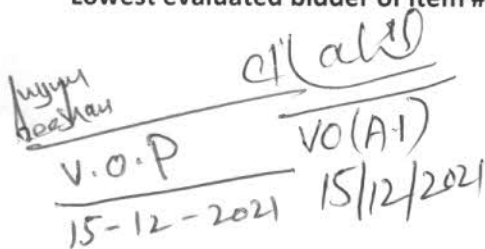 Lowest evaluated bidder of item #
V.O.P
15-12-2021
VO(A.I)
15/12/2021